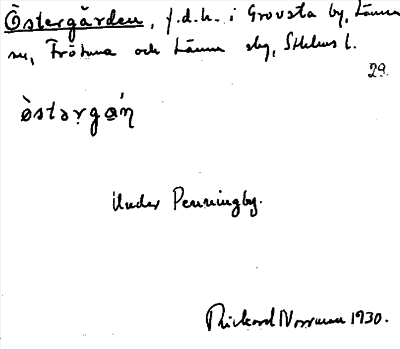 Östergården, f.d.h. i Grovsta by, Länna
sn, Frötuna och Länna skg, Sthlms l.
29.
òstərgɑ́ń
Under Penningby.
Rickard Norrman 1930.